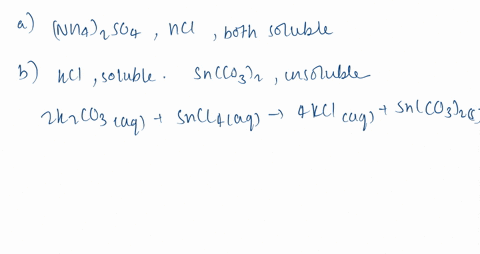 a) (NH4)2SO4 , KCl , both soluble
b) KCl , soluble . Sn(CO3)2 , insoluble
2K2CO3 (aq) + SnCl4 (aq) → 4KCl (aq) + Sn(CO3)2(s)